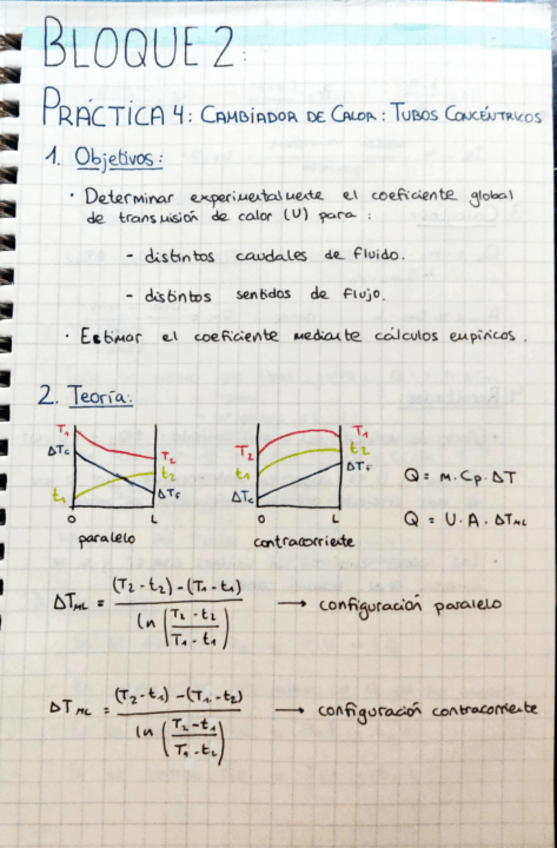 BLOQUE 2:
PRÁCTICA 4: CAMBIADOR DE CALOR: TUBOS CONCÉNTRICOS
1. Objetivos:
· Determinar experimentalmente el coeficiente global
de transmisión de calor (U) para:
- distintos caudales de fluido.
- distintos sentidos de flujo.
· Estimar el coeficiente mediante cálculos empíricos.
2. Teoría:
T₁ ΔTc t₁ T₂ t₂ ΔTF
0 L
paralelo
T₂ t₁ ΔTc T₁ t₂ ΔTF
0 L
contracorriente
Q = m · Cp · ΔT
Q = U · A · ΔTML
ΔTML = (T₂ - t₂) - (T₁ - t₁) / ln (T₂ - t₂ / T₁ - t₁) → configuración paralelo
ΔTML = (T₂ - t₁) - (T₁ - t₂) / ln (T₂ - t₁ / T₁ - t₂) → configuración contracorriente